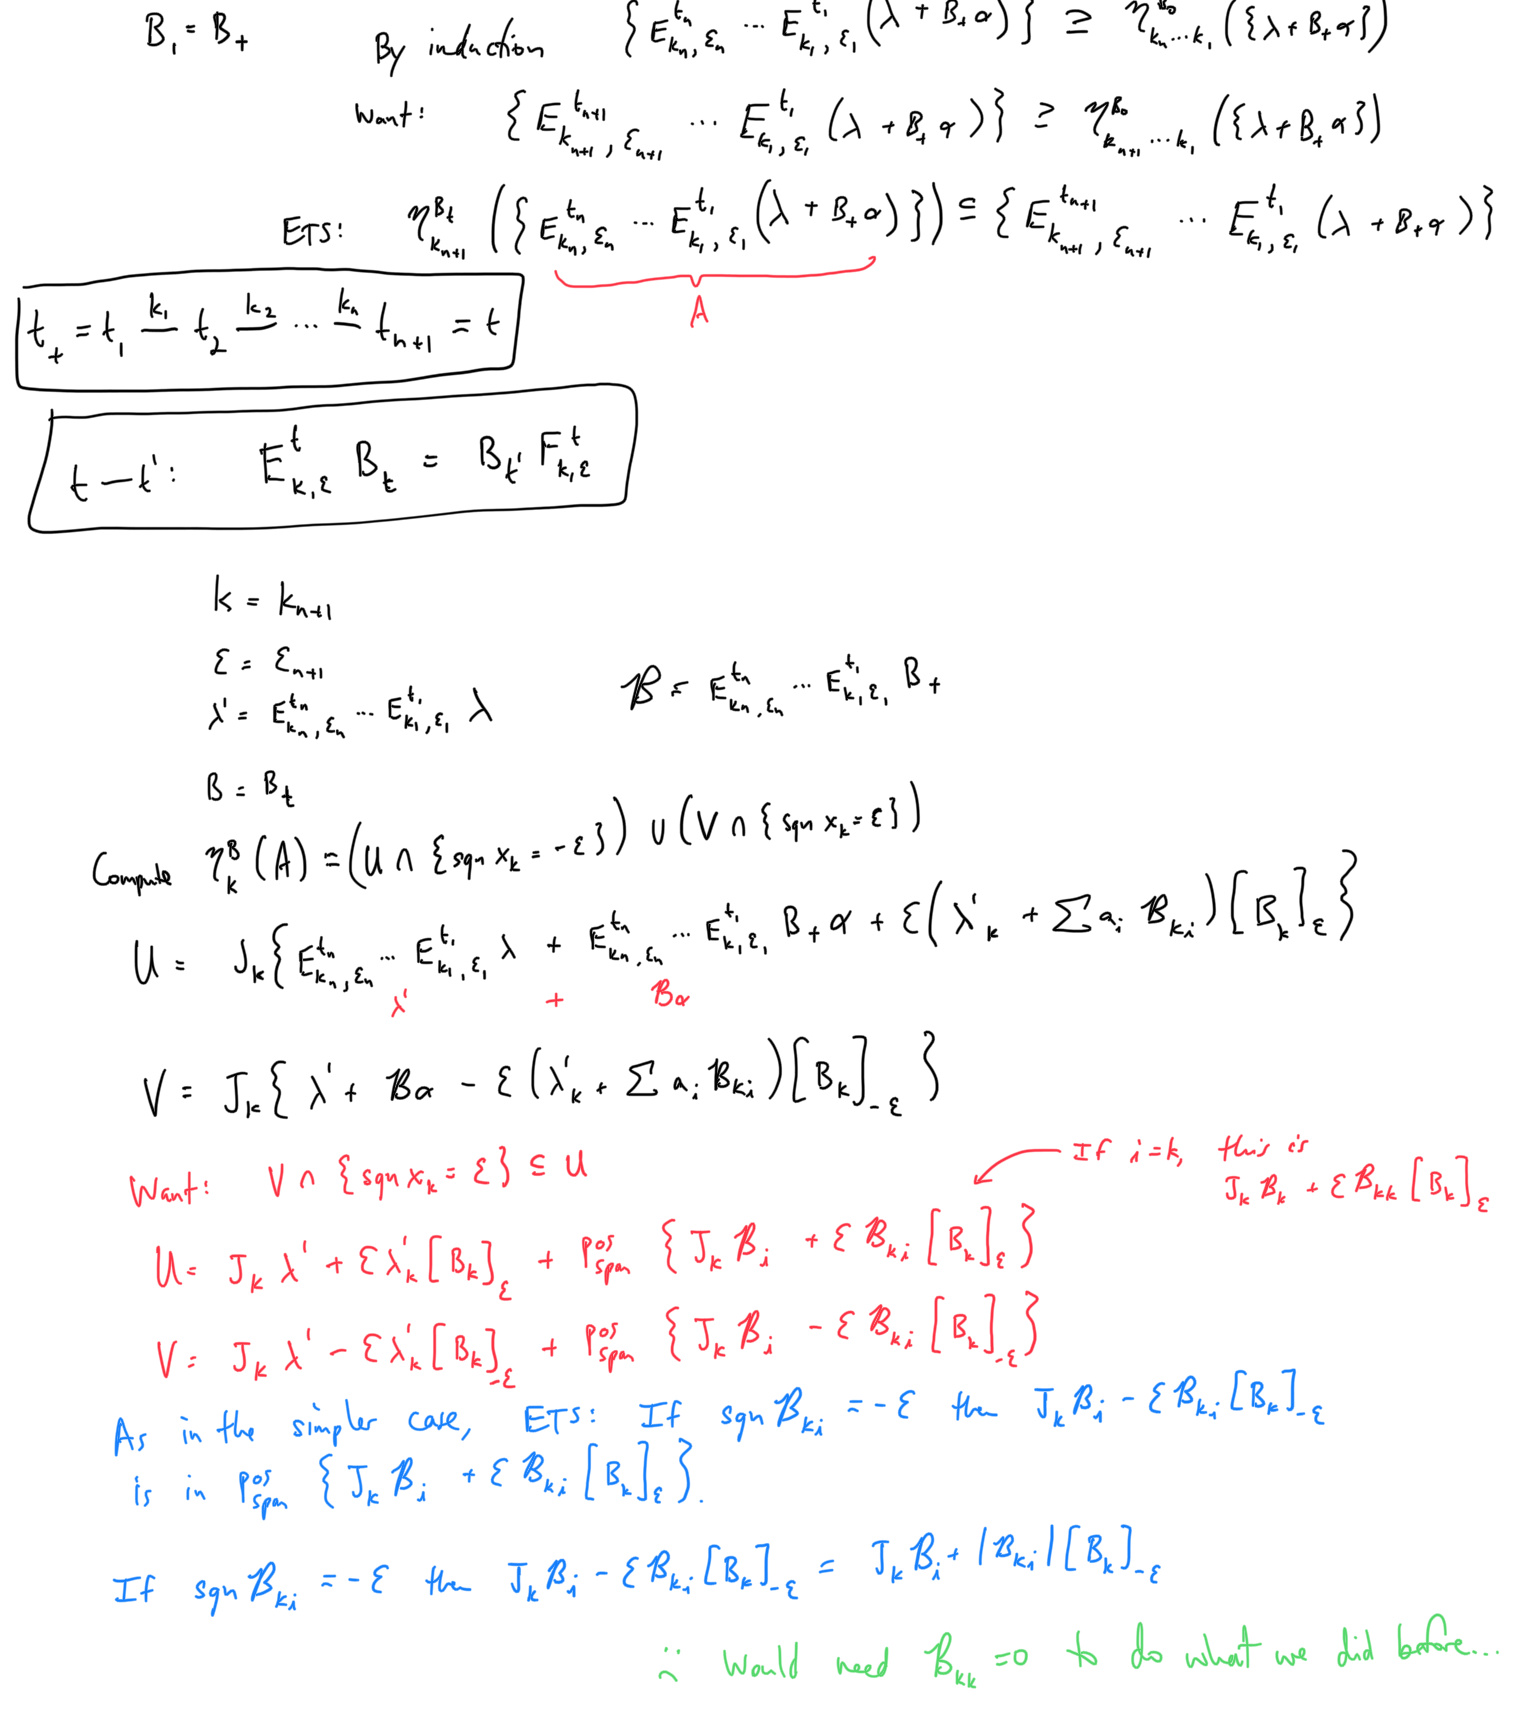 B₁ = B₊ By induction { E^{t_n}_{k_n, ε_n} ⋯ E^{t_1}_{k_1, ε_1} (λ + B₊ α) } ⊇ η^{B_0}_{k_n⋯k_1} ({λ + B₊ α})
Want: { E^{t_{n+1}}_{k_{n+1}, ε_{n+1}} ⋯ E^{t_1}_{k_1, ε_1} (λ + B₊ α) } ⊇ η^{B_0}_{k_{n+1}⋯k_1} ({λ + B₊ α})
ETS: η^{B_t}_{k_{n+1}} ({ E^{t_n}_{k_n, ε_n} ⋯ E^{t_1}_{k_1, ε_1} (λ + B₊ α) }) ⊆ { E^{t_{n+1}}_{k_{n+1}, ε_{n+1}} ⋯ E^{t_1}_{k_1, ε_1} (λ + B₊ α) }
A
t₊ = t_1 —^{k_1} t_2 —^{k_2} ⋯ —^{k_n} t_{n+1} = t
t — t': E^t_{k,ε} B_t = B_{t'} F^t_{k,ε}
k = k_{n+1}
ε = ε_{n+1}
λ' = E^{t_n}_{k_n, ε_n} ⋯ E^{t_1}_{k_1, ε_1} λ ℬ = E^{t_n}_{k_n, ε_n} ⋯ E^{t_1}_{k_1, ε_1} B₊
B = B_t
Compute η^B_k (A) = (U ∩ {sgn x_k = -ε}) ∪ (V ∩ {sgn x_k = ε})
U = J_k { E^{t_n}_{k_n, ε_n} ⋯ E^{t_1}_{k_1, ε_1} λ + E^{t_n}_{k_n, ε_n} ⋯ E^{t_1}_{k_1, ε_1} B₊ α + ε(λ'_k + Σ a_i ℬ_{ki}) [B_k]_ε }
λ' + ℬα
V = J_k { λ' + ℬα - ε(λ'_k + Σ a_i ℬ_{ki}) [B_k]_{-ε} }
Want: V ∩ {sgn x_k = ε} ⊆ U
If i=k, this is
J_k ℬ_k + ε ℬ_{kk} [B_k]_ε
U = J_k λ' + ελ'_k [B_k]_ε + pos span { J_k ℬ_i + ε ℬ_{ki} [B_k]_ε }
V = J_k λ' - ελ'_k [B_k]_{-ε} + pos span { J_k ℬ_i - ε ℬ_{ki} [B_k]_{-ε} }
As in the simpler case, ETS: If sgn ℬ_{ki} = -ε then J_k ℬ_i - ε ℬ_{ki} [B_k]_{-ε}
is in pos span { J_k ℬ_i + ε ℬ_{ki} [B_k]_ε }.
If sgn ℬ_{ki} = -ε then J_k ℬ_i - ε ℬ_{ki} [B_k]_{-ε} = J_k ℬ_i + |ℬ_{ki}| [B_k]_{-ε}
:( Would need ℬ_{kk} = 0 to do what we did before...